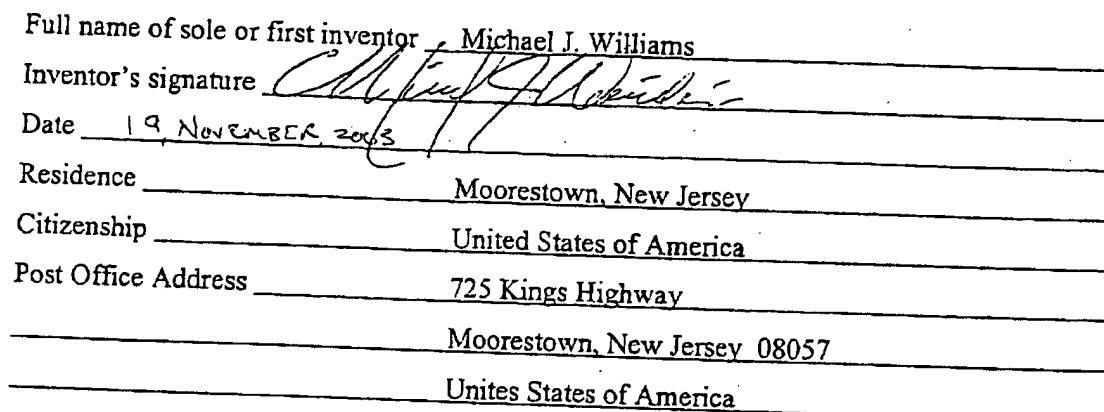 Full name of sole or first inventor Michael J. Williams
Inventor's signature
Date 19, NOVEMBER 2003
Residence Moorestown, New Jersey
Citizenship United States of America
Post Office Address 725 Kings Highway
Moorestown, New Jersey 08057
Unites States of America